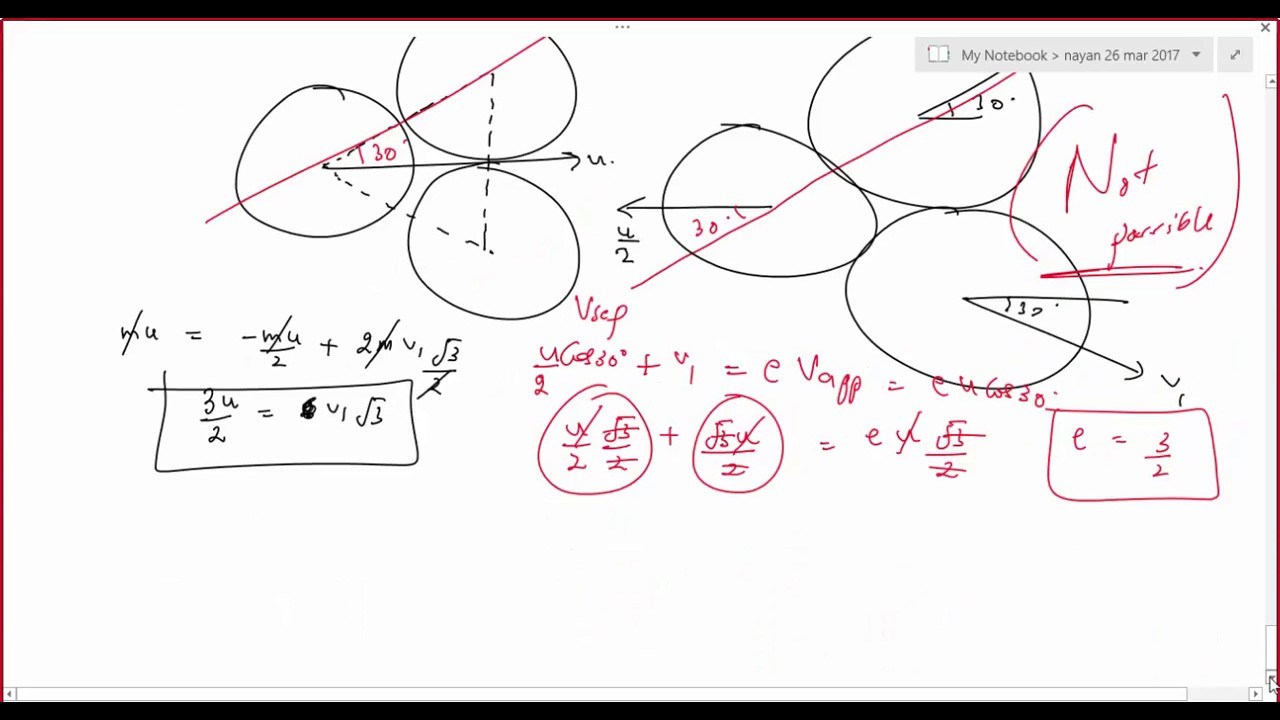 My Notebook > nayan 26 mar 2017
30°
u.
30°
Not
possible
u/2
30°
30°
v₁
mu = -mu/2 + 2m v₁ √3/2
3u/2 = v₁ √3
Vsep
u/2 Cos30° + v₁ = e Vapp = e u Cos30.
u/2 √3/2 + √3u/2 = e u √3/2
e = 3/2